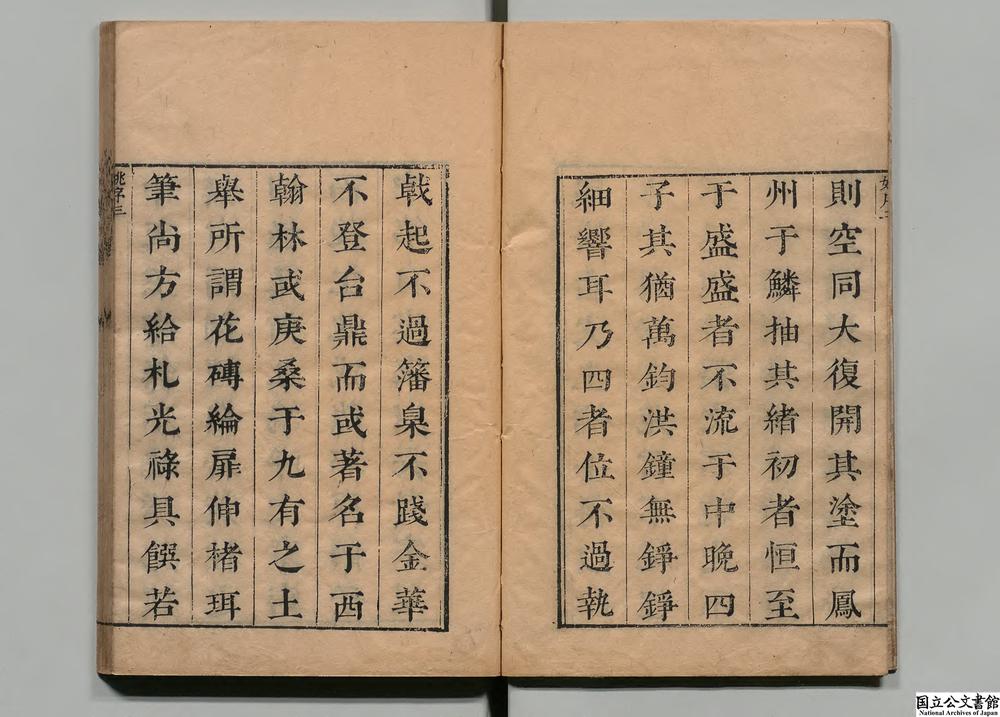 則空同大復開其塗而鳳
州于鱗抽其緒初者恒至
于盛盛者不流于中晚四
子其猶萬鈞洪鐘無錚錚
細響耳乃四者位不過執
戟起不過籓臬不踐金華
不登台鼎而或著名于西
翰林或庚桑于九有之土
舉所謂花磚綸扉伸楮珥
筆尚方給札光祿具饌若
國立公文書館
National Archives of Japan